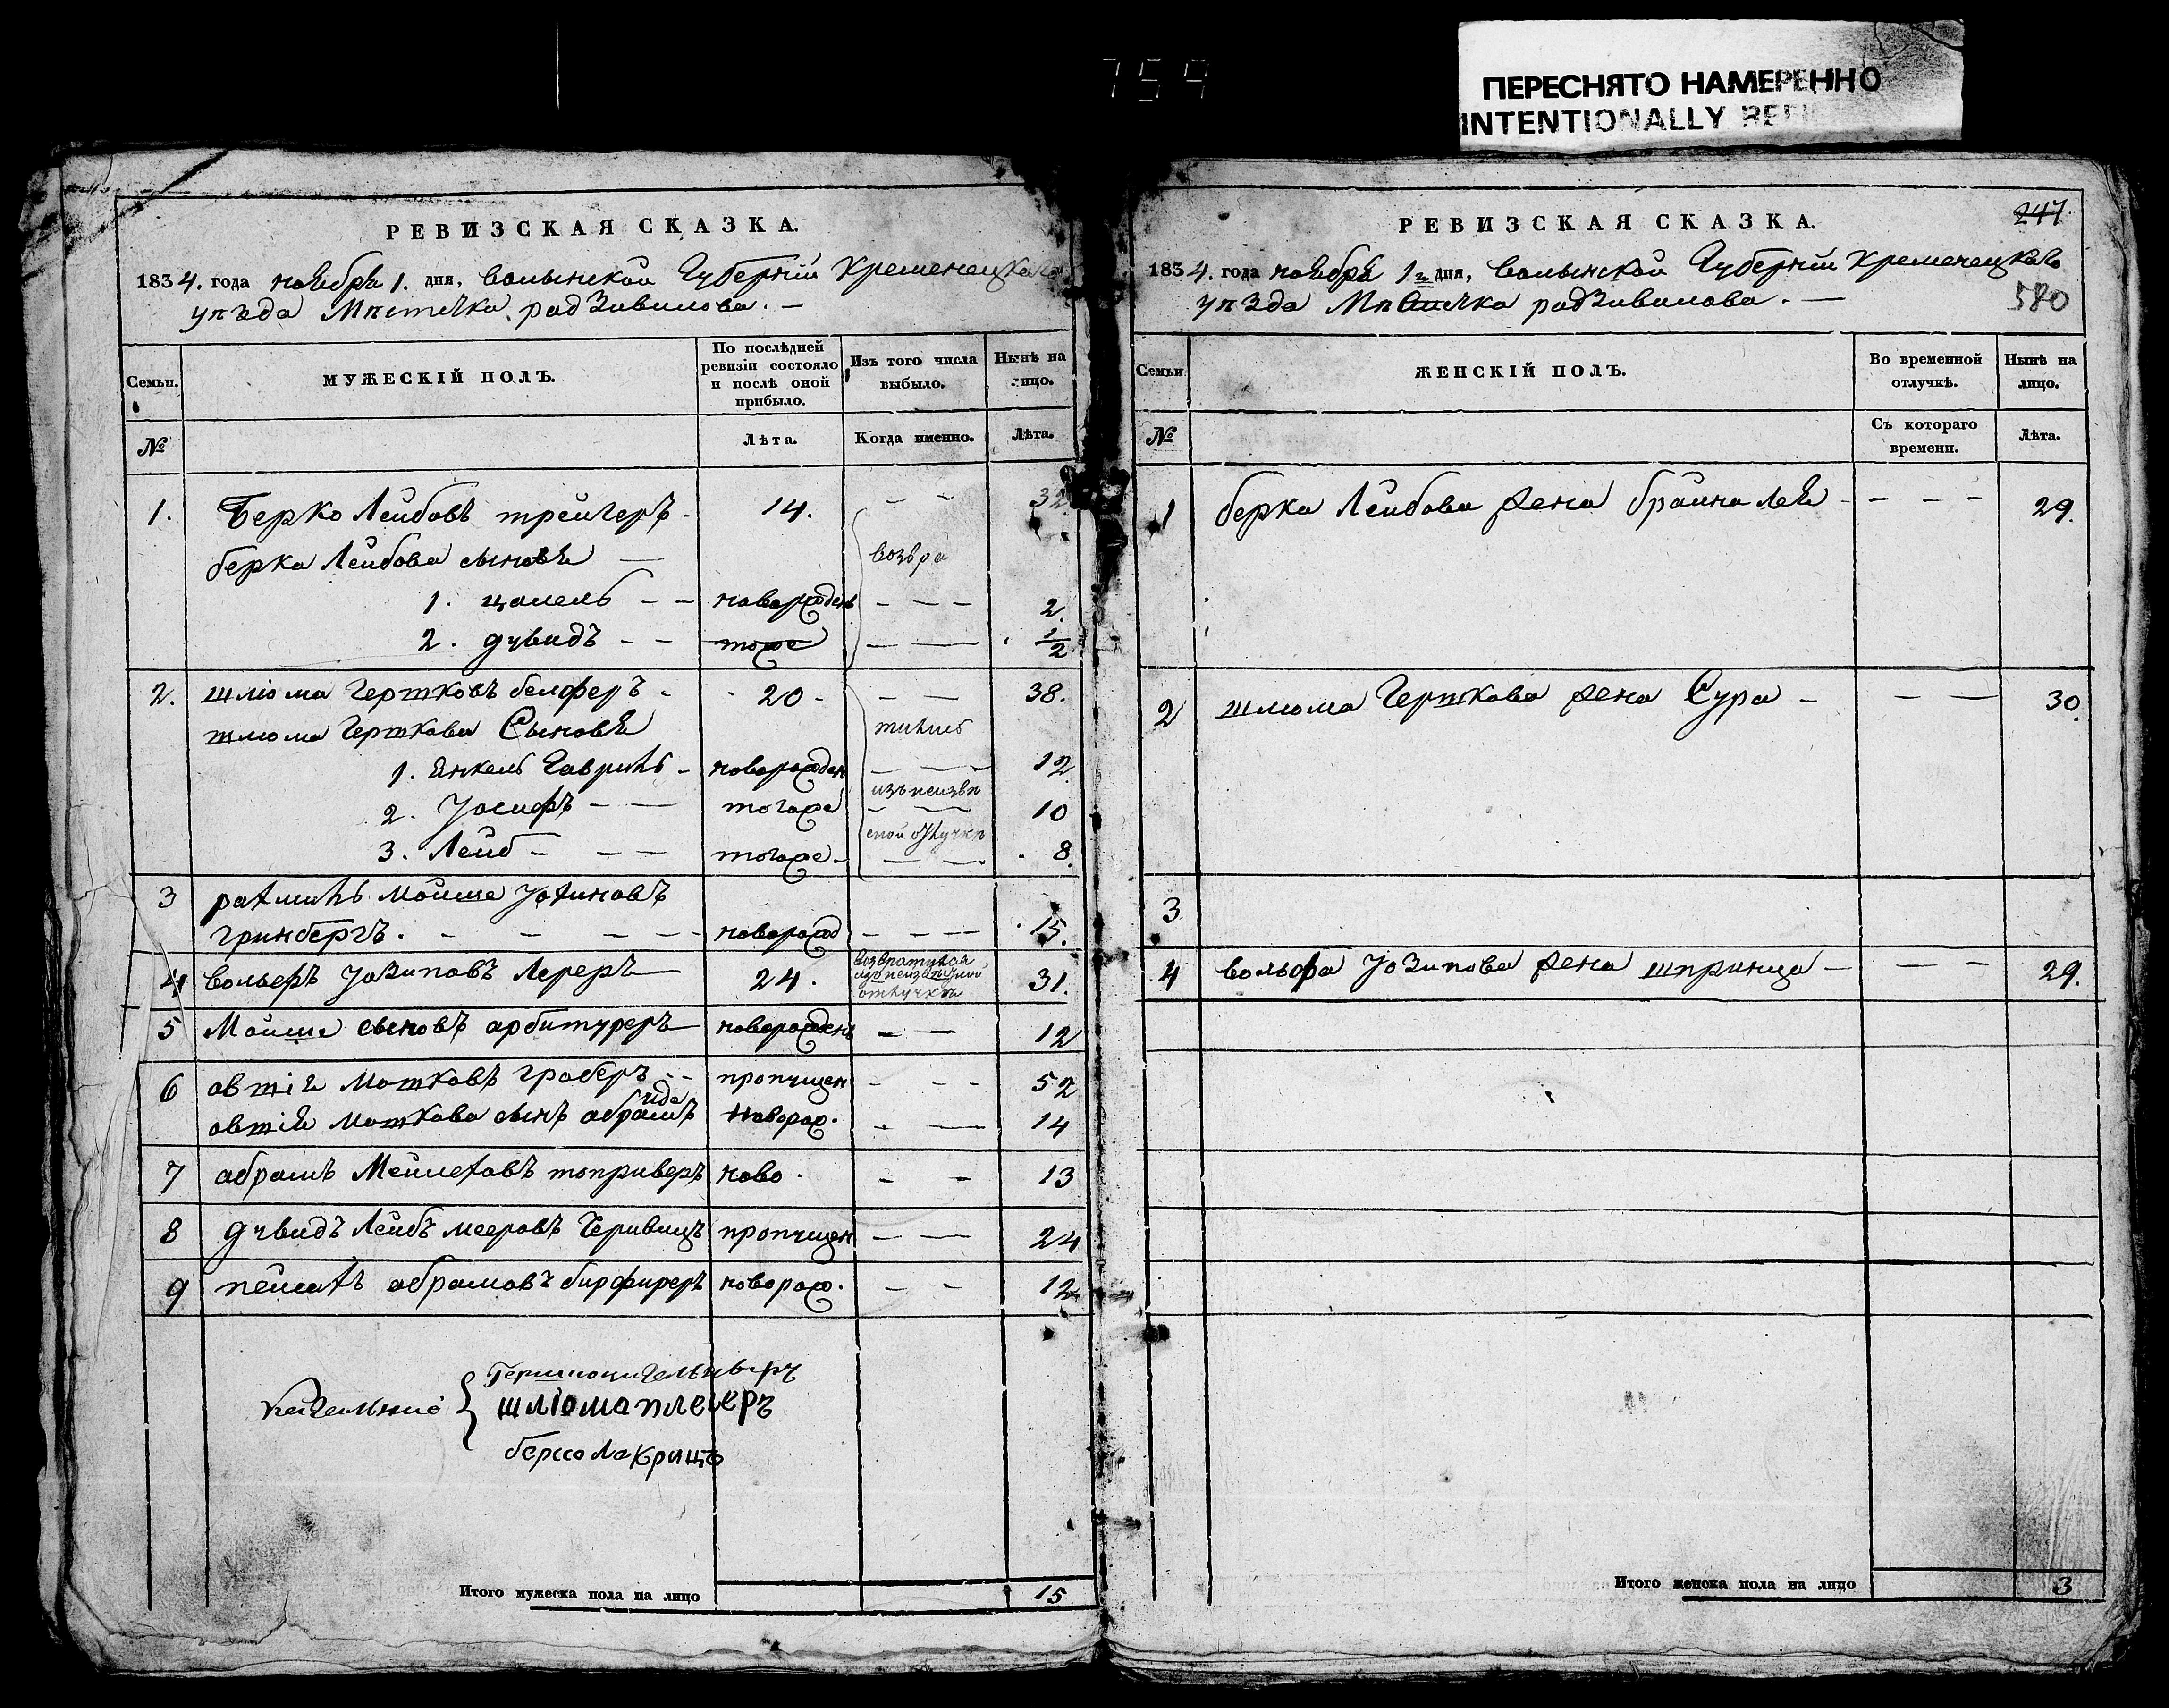 759
ПЕРЕСНЯТО НАМЕРЕННО
INTENTIONALLY
РЕВИЗСКАЯ СКАЗКА.
1834. года ноября 1. дня, волынской Губерніи Кременецкаго
уѣзда Мѣстечка радзивилова. —
Семьи.
МУЖЕСКІЙ ПОЛЪ.
По послѣдней ревизіи состояло и послѣ оной прибыло.
Изъ того числа выбыло.
Нынѣ на лицо.
№
Лѣта.
Когда именно.
Лѣта.
1. Берко Лейбовъ трейгеръ - 14. - - 32.
берка Лейбова сыновя — возвра
1. цалель - - новорожденъ - - - 2.
2. дувидъ - - тоже — — 1/2
2. шліома Гертковъ белферъ - 20 - — — 38.
шлюма Герткова Сыновя тились
1. Янкель Гаврилъ - новорожден — — 12
изъ неизвѣ
2. Іосифъ - — тогоже — — 10
стной отлучки
3. Лейб - — — тогоже - — — 8.
3 рахмилъ мойше
гринбергъ. - - - - новорожд - - — 15.
4 вольфъ Іозиповъ Лереръ 24. возвратился изъ неизвѣстной отлучки 31.
5 Мойше сыновъ арбитуреръ новорожденъ - — 12
6 овтія мотковъ граберъ - - пропущен - - - 52
овтія моткова сынъ абрамъ новорож. - — 14
7 абрамъ Мейлеховъ топриверъ ново. - - 13
8 дувидъ Лейбъ мееровъ пропущен — — 24
9 пейсахъ абрамовъ бирфиреръ новорож. - - 12
шліома плеиеръ
Итого мужеска пола на лицо 15
РЕВИЗСКАЯ СКАЗКА.
247
1834. года ноября 1го дня, волынской Губерніи Кременецкаго
уѣзда Мѣстечка радзивилова. —
580
Семьи
ЖЕНСКІЙ ПОЛЪ.
Во временной отлучкѣ.
Нынѣ на лицо.
№
Съ котораго времени.
Лѣта.
1 берка Лейбова жена браина лея - - - - 29.
2 шлюма Герткова жена Сура - — — 30.
3
4 вольфа Іозипова жена шпринца — — — 29.
Итого женска пола на лицо 3